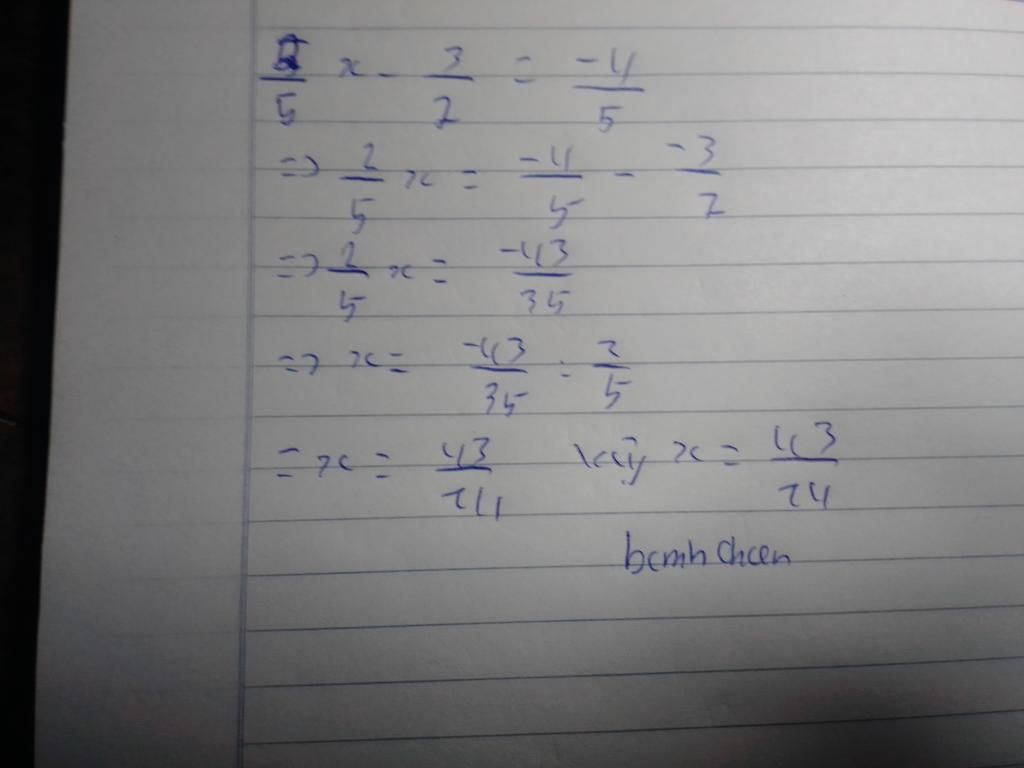 2/5 x - 3/7 = -4/5
=> 2/5 x = -4/5 - -3/7
=> 2/5 x = -43/35
=> x = -43/35 : 2/5
= x = 43/24 Vậy x = 43/24